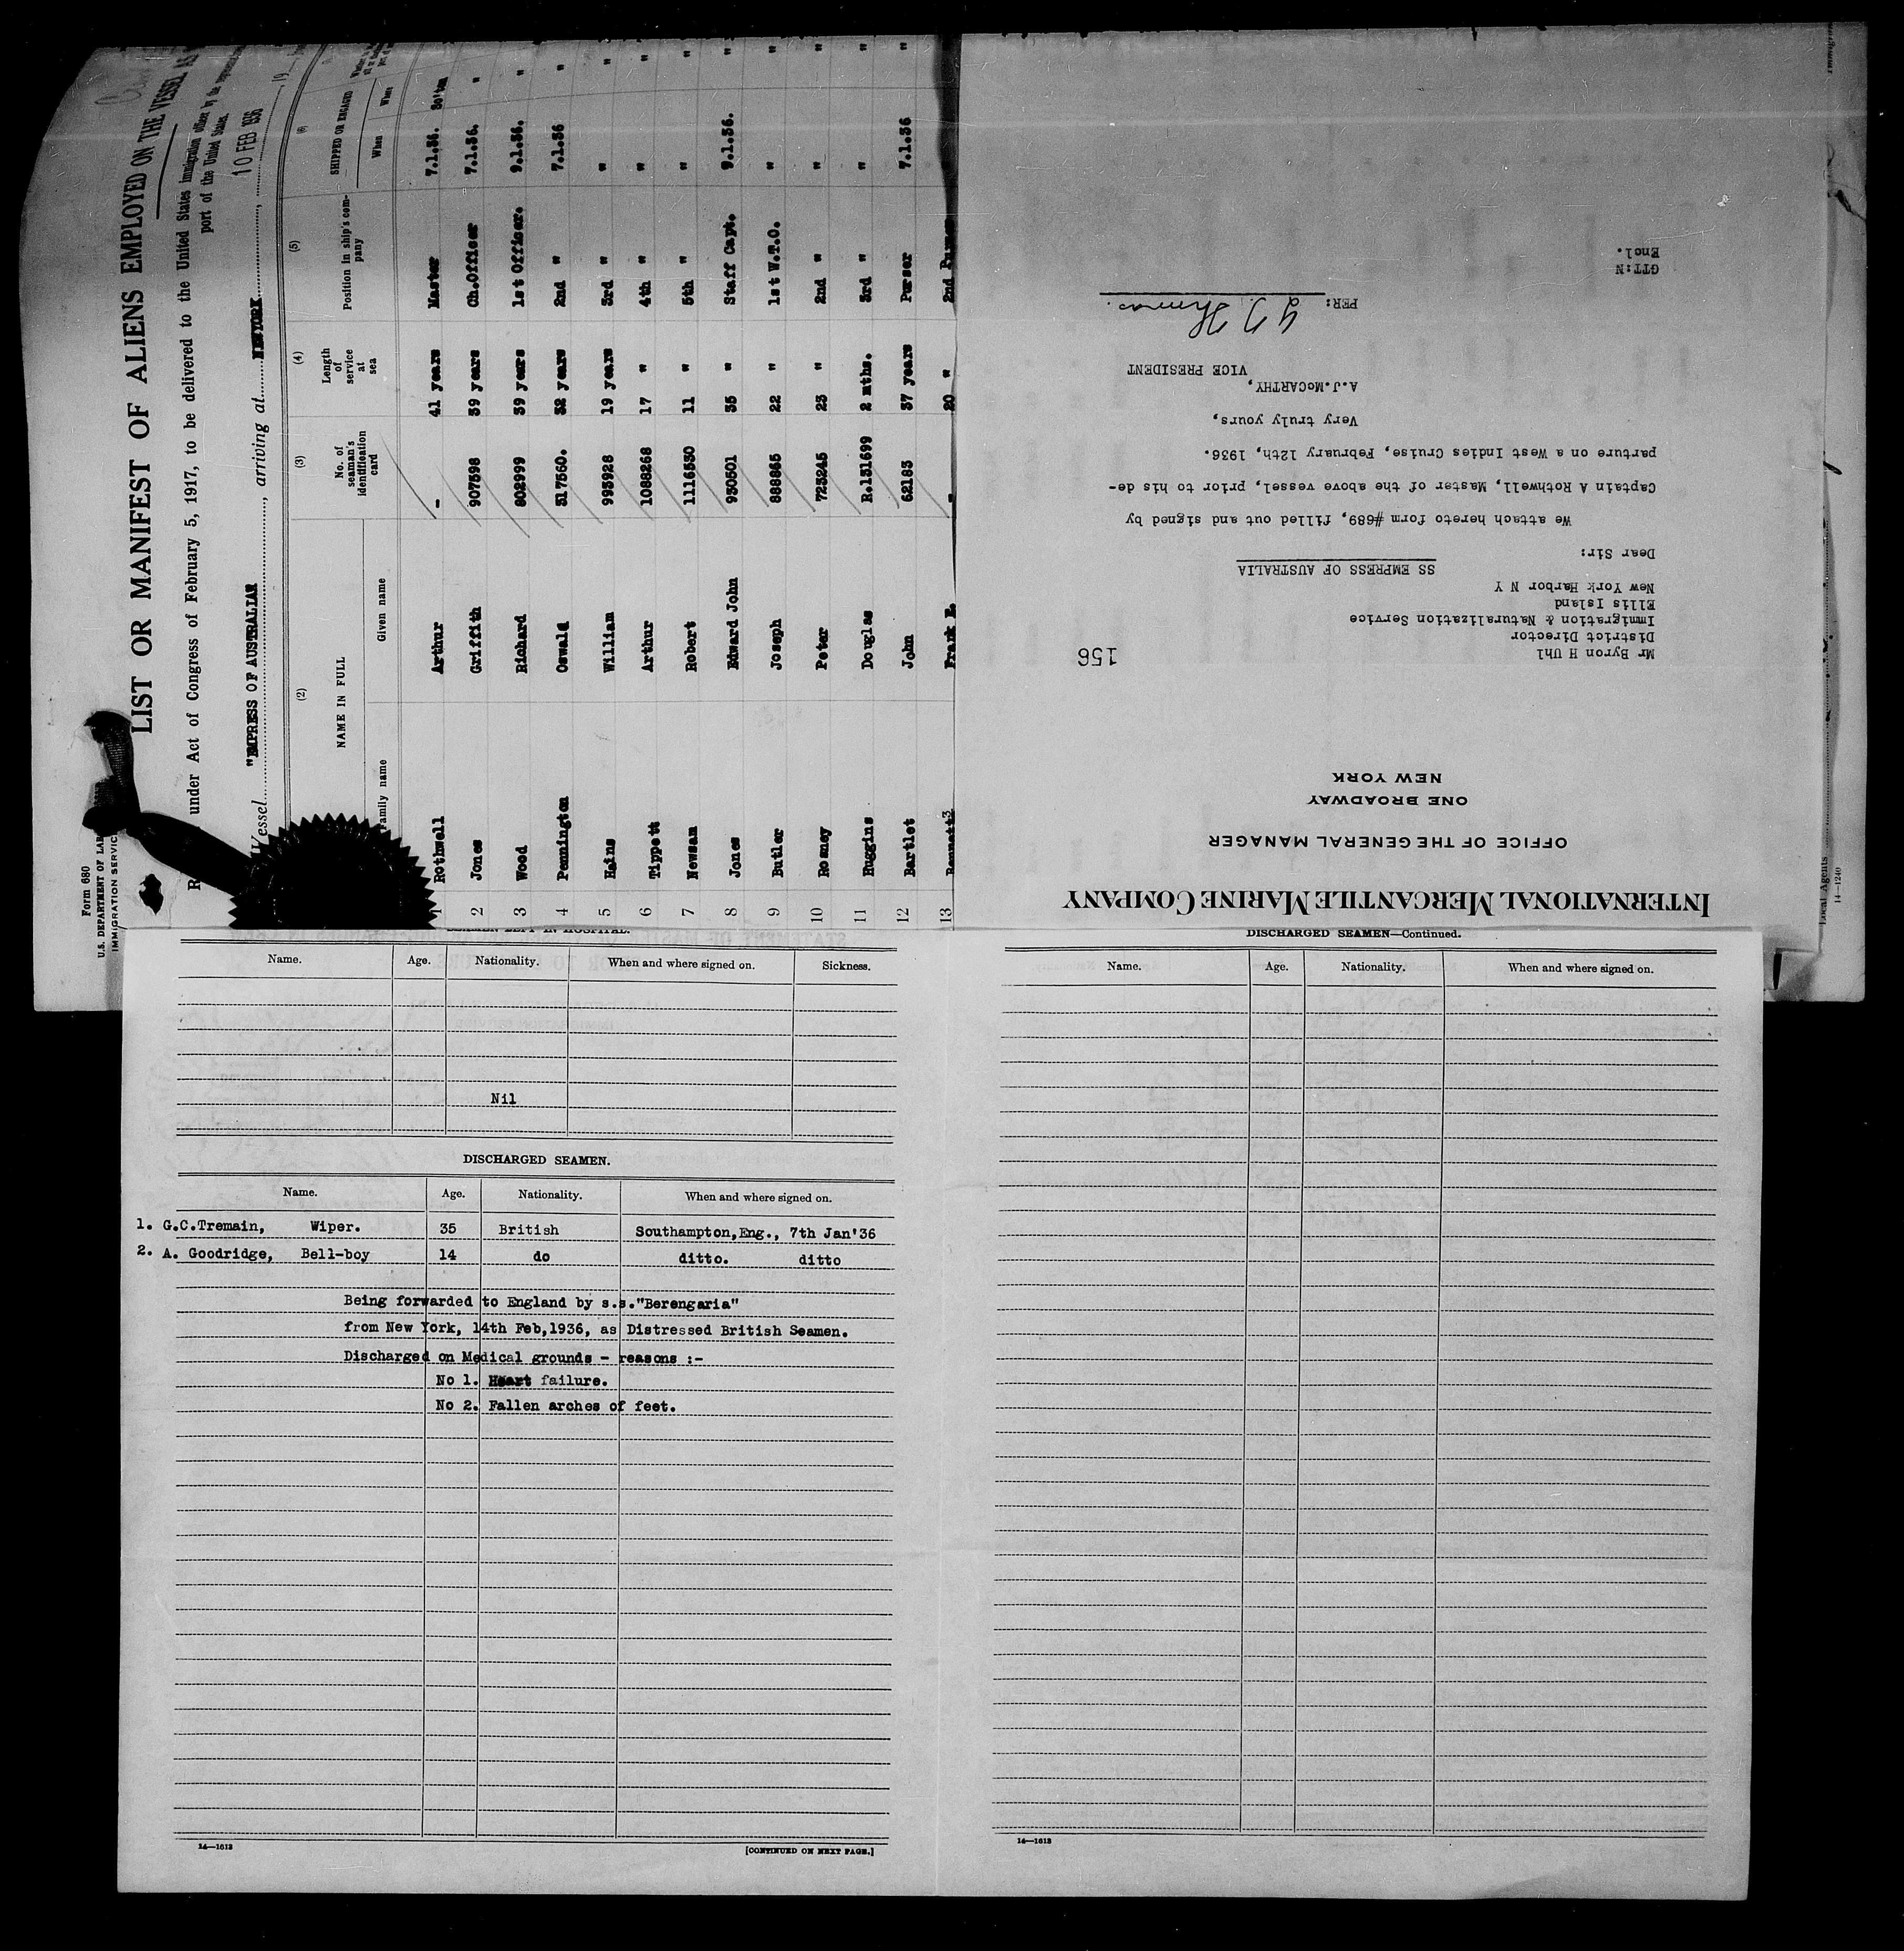 Form 680
U.S. DEPARTMENT OF
IMMIGRATION SERVICE
LIST OR MANIFEST OF ALIENS EMPLOYED ON THE VESSEL AS
under Act of Congress of February 5, 1917, to be delivered to the United States immigration officer by the
port of the United States.
Vessel "EMPRESS OF AUSTRALIA", arriving at NEWYORK, 10 FEB 1936, 19
(2) (3) (4) (5) (6)
NAME IN FULL No. of seaman's identification card Length of service at sea Position in ship's company SHIPPED OR ENGAGED
Family name Given name When Where
1 Rothwell Arthur – 41 years Master 7.1.36. So'ton
2 Jones Griffith 907598 39 years Ch.Officer 7.1.36. "
3 Wood Richard 802999 39 years 1st Officer. 9.1.36. " "
4 Pennington Oswald 317560. 32 years 2nd " 7.1.36 " "
5 Hains William 993928 19 years 3rd " " " "
6 Tippett Arthur 1088268 17 " 4th " " " "
7 Newsam Robert 1116530 11 " 5th " " " "
8 Jones Edward John 930501 35 " Staff Capt. 9.1.36. " "
9 Butler Joseph 888865 22 " 1st W.T.O. " " "
10 Rosney Peter 723245 23 " 2nd " " " "
11 Huggins Douglas R.131699 2 mths. 3rd " " " "
12 Bartlet John 62183 37 years Purser 7.1.36 " "
13 Frank E. – 20 " 2nd Purser
INTERNATIONAL MERCANTILE MARINE COMPANY
OFFICE OF THE GENERAL MANAGER
ONE BROADWAY
NEW YORK
156
Mr Byron H Uhl
District Director
Immigration & Naturalization Service
Ellis Island
New York Harbor N Y
SS EMPRESS OF AUSTRALIA
Dear Sir:
We attach hereto form #689, filled out and signed by
Captain A Rothwell, Master of the above vessel, prior to his de-
parture on a West Indies Cruise, February 12th, 1936.
Very truly yours,
A.J.McCARTHY,
VICE PRESIDENT
PER:
GTT:N
Encl.
Local Agents
14—1240
SEAMEN LEFT IN HOSPITAL.
Name. Age. Nationality. When and where signed on. Sickness.
Nil
DISCHARGED SEAMEN.
Name. Age. Nationality. When and where signed on.
1. G.C.Tremain, Wiper. 35 British Southampton,Eng., 7th Jan'36
2. A. Goodridge, Bell-boy 14 do ditto. ditto
Being forwarded to England by s.s."Berengaria"
from New York, 14th Feb,1936, as Distressed British Seamen.
Discharged on Medical grounds - reasons :-
No 1. Heart failure.
No 2. Fallen arches of feet.
14—1613
[CONTINUED ON NEXT PAGE.]
DISCHARGED SEAMEN—Continued.
Name. Age. Nationality. When and where signed on.
14—1613